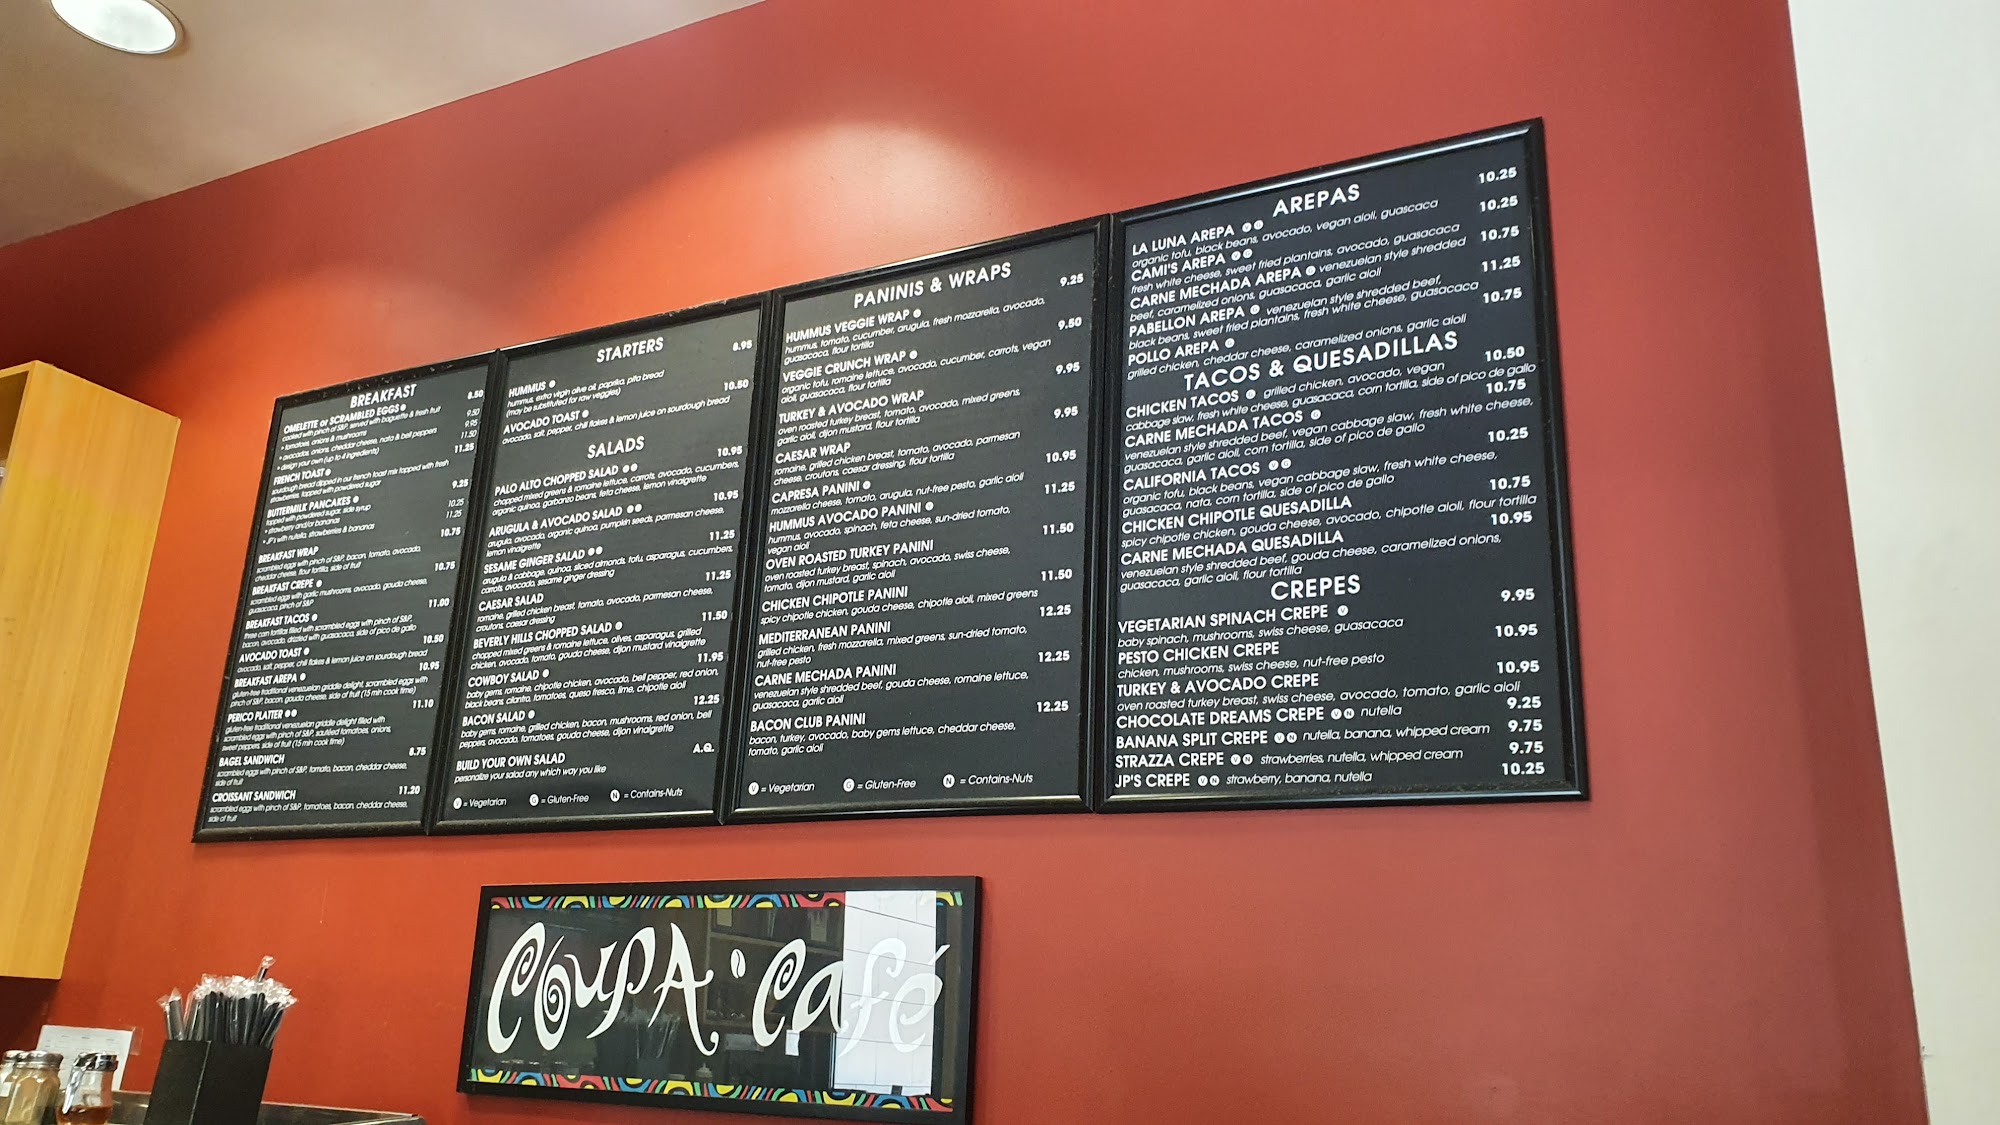 BREAKFAST
OMELETTE or SCRAMBLED EGGS 8.50
cooked with pinch of S&P, served with baguette & fresh fruit
• tomatoes, onions & mushrooms 9.50
• avocados, onions, cheddar cheese, nata & bell peppers 9.95
• design your own (up to 4 ingredients) 11.50
FRENCH TOAST 11.25
sourdough bread dipped in our french toast mix topped with fresh
strawberries, topped with powdered sugar
BUTTERMILK PANCAKES 9.25
topped with powdered sugar, side syrup
• strawberry and/or bananas 10.25
• JP's with nutella, strawberries & bananas 11.25
BREAKFAST WRAP 10.75
scrambled eggs with pinch of S&P, bacon, tomato, avocado,
cheddar cheese, flour tortilla, side of fruit
BREAKFAST CREPE 10.75
scrambled eggs with garlic mushrooms, avocado, gouda cheese,
guasacaca, pinch of S&P
BREAKFAST TACOS 11.00
three corn tortillas filled with scrambled eggs with pinch of S&P,
bacon, avocado, drizzled with guasacaca, side of pico de gallo
AVOCADO TOAST 10.50
avocado, salt, pepper, chili flakes & lemon juice on sourdough bread
BREAKFAST AREPA 10.95
gluten-free traditional venezuelan griddle delight, scrambled eggs with
pinch of S&P, bacon, gouda cheese, side of fruit (15 min cook time)
PERICO PLATTER 11.10
gluten-free traditional venezuelan griddle delight filled with
scrambled eggs with pinch of S&P, sautéed tomatoes, onions,
sweet peppers, side of fruit (15 min cook time)
BAGEL SANDWICH 8.75
scrambled eggs with pinch of S&P, tomato, bacon, cheddar cheese,
side of fruit
CROISSANT SANDWICH 11.20
scrambled eggs with pinch of S&P, tomatoes, bacon, cheddar cheese,
side of fruit
STARTERS
HUMMUS 8.95
hummus, extra virgin olive oil, paprika, pita bread
(may be substituted for raw veggies)
AVOCADO TOAST 10.50
avocado, salt, pepper, chili flakes & lemon juice on sourdough bread
SALADS
PALO ALTO CHOPPED SALAD 10.95
chopped mixed greens & romaine lettuce, carrots, avocado, cucumbers,
organic quinoa, garbanzo beans, feta cheese, lemon vinaigrette
ARUGULA & AVOCADO SALAD 10.95
arugula, avocado, organic quinoa, pumpkin seeds, parmesan cheese,
lemon vinaigrette
SESAME GINGER SALAD 11.25
arugula & cabbage, quinoa, sliced almonds, tofu, asparagus, cucumbers,
carrots, avocado, sesame ginger dressing
CAESAR SALAD 11.25
romaine, grilled chicken breast, tomato, avocado, parmesan cheese,
croutons, caesar dressing
BEVERLY HILLS CHOPPED SALAD 11.50
chopped mixed greens & romaine lettuce, olives, asparagus, grilled
chicken, avocado, tomato, gouda cheese, dijon mustard vinaigrette
COWBOY SALAD 11.95
baby gems, romaine, chipotle chicken, avocado, bell pepper, red onion,
black beans, cilantro, tomatoes, queso fresco, lime, chipotle aioli
BACON SALAD 12.25
baby gems, romaine, grilled chicken, bacon, mushrooms, red onion, bell
peppers, avocado, tomatoes, gouda cheese, dijon vinaigrette
BUILD YOUR OWN SALAD A.Q.
personalize your salad any which way you like
V = Vegetarian G = Gluten-Free N = Contains-Nuts
PANINIS & WRAPS
HUMMUS VEGGIE WRAP 9.25
hummus, tomato, cucumber, arugula, fresh mozzarella, avocado,
guasacaca, flour tortilla
VEGGIE CRUNCH WRAP 9.50
organic tofu, romaine lettuce, avocado, cucumber, carrots, vegan
aioli, guasacaca, flour tortilla
TURKEY & AVOCADO WRAP 9.95
oven roasted turkey breast, tomato, avocado, mixed greens,
garlic aioli, dijon mustard, flour tortilla
CAESAR WRAP 9.95
romaine, grilled chicken breast, tomato, avocado, parmesan
cheese, croutons, caesar dressing, flour tortilla
CAPRESA PANINI 10.95
mozzarella cheese, tomato, arugula, nut-free pesto, garlic aioli
HUMMUS AVOCADO PANINI 11.25
hummus, avocado, spinach, feta cheese, sun-dried tomato,
vegan aioli
OVEN ROASTED TURKEY PANINI 11.50
oven roasted turkey breast, spinach, avocado, swiss cheese,
tomato, dijon mustard, garlic aioli
CHICKEN CHIPOTLE PANINI 11.50
spicy chipotle chicken, gouda cheese, chipotle aioli, mixed greens
MEDITERRANEAN PANINI 12.25
grilled chicken, fresh mozzarella, mixed greens, sun-dried tomato,
nut-free pesto
CARNE MECHADA PANINI 12.25
venezuelan style shredded beef, gouda cheese, romaine lettuce,
guasacaca, garlic aioli
BACON CLUB PANINI 12.25
bacon, turkey, avocado, baby gems lettuce, cheddar cheese,
tomato, garlic aioli
V = Vegetarian G = Gluten-Free N = Contains-Nuts
AREPAS
LA LUNA AREPA V G 10.25
organic tofu, black beans, avocado, vegan aioli, guascaca
CAMI'S AREPA V G 10.25
fresh white cheese, sweet fried plantains, avocado, guasacaca
CARNE MECHADA AREPA G venezuelan style shredded 10.75
beef, caramelized onions, guasacaca, garlic aioli
PABELLON AREPA G venezuelan style shredded beef, 11.25
black beans, sweet fried plantains, fresh white cheese, guasacaca
POLLO AREPA G 10.75
grilled chicken, cheddar cheese, caramelized onions, garlic aioli
TACOS & QUESADILLAS
CHICKEN TACOS G grilled chicken, avocado, vegan 10.50
cabbage slaw, fresh white cheese, guasacaca, corn tortilla, side of pico de gallo
CARNE MECHADA TACOS G 10.75
venezuelan style shredded beef, vegan cabbage slaw, fresh white cheese,
guasacaca, garlic aioli, corn tortilla, side of pico de gallo
CALIFORNIA TACOS V G 10.25
organic tofu, black beans, vegan cabbage slaw, fresh white cheese,
guasacaca, nata, corn tortilla, side of pico de gallo
CHICKEN CHIPOTLE QUESADILLA 10.75
spicy chipotle chicken, gouda cheese, avocado, chipotle aioli, flour tortilla
CARNE MECHADA QUESADILLA 10.95
venezuelan style shredded beef, gouda cheese, caramelized onions,
guasacaca, garlic aioli, flour tortilla
CREPES
VEGETARIAN SPINACH CREPE V 9.95
baby spinach, mushrooms, swiss cheese, guasacaca
PESTO CHICKEN CREPE 10.95
chicken, mushrooms, swiss cheese, nut-free pesto
TURKEY & AVOCADO CREPE 10.95
oven roasted turkey breast, swiss cheese, avocado, tomato, garlic aioli
CHOCOLATE DREAMS CREPE V N nutella 9.25
BANANA SPLIT CREPE V N nutella, banana, whipped cream 9.75
STRAZZA CREPE V N strawberries, nutella, whipped cream 9.75
JP'S CREPE V N strawberry, banana, nutella 10.25
COUPA Café